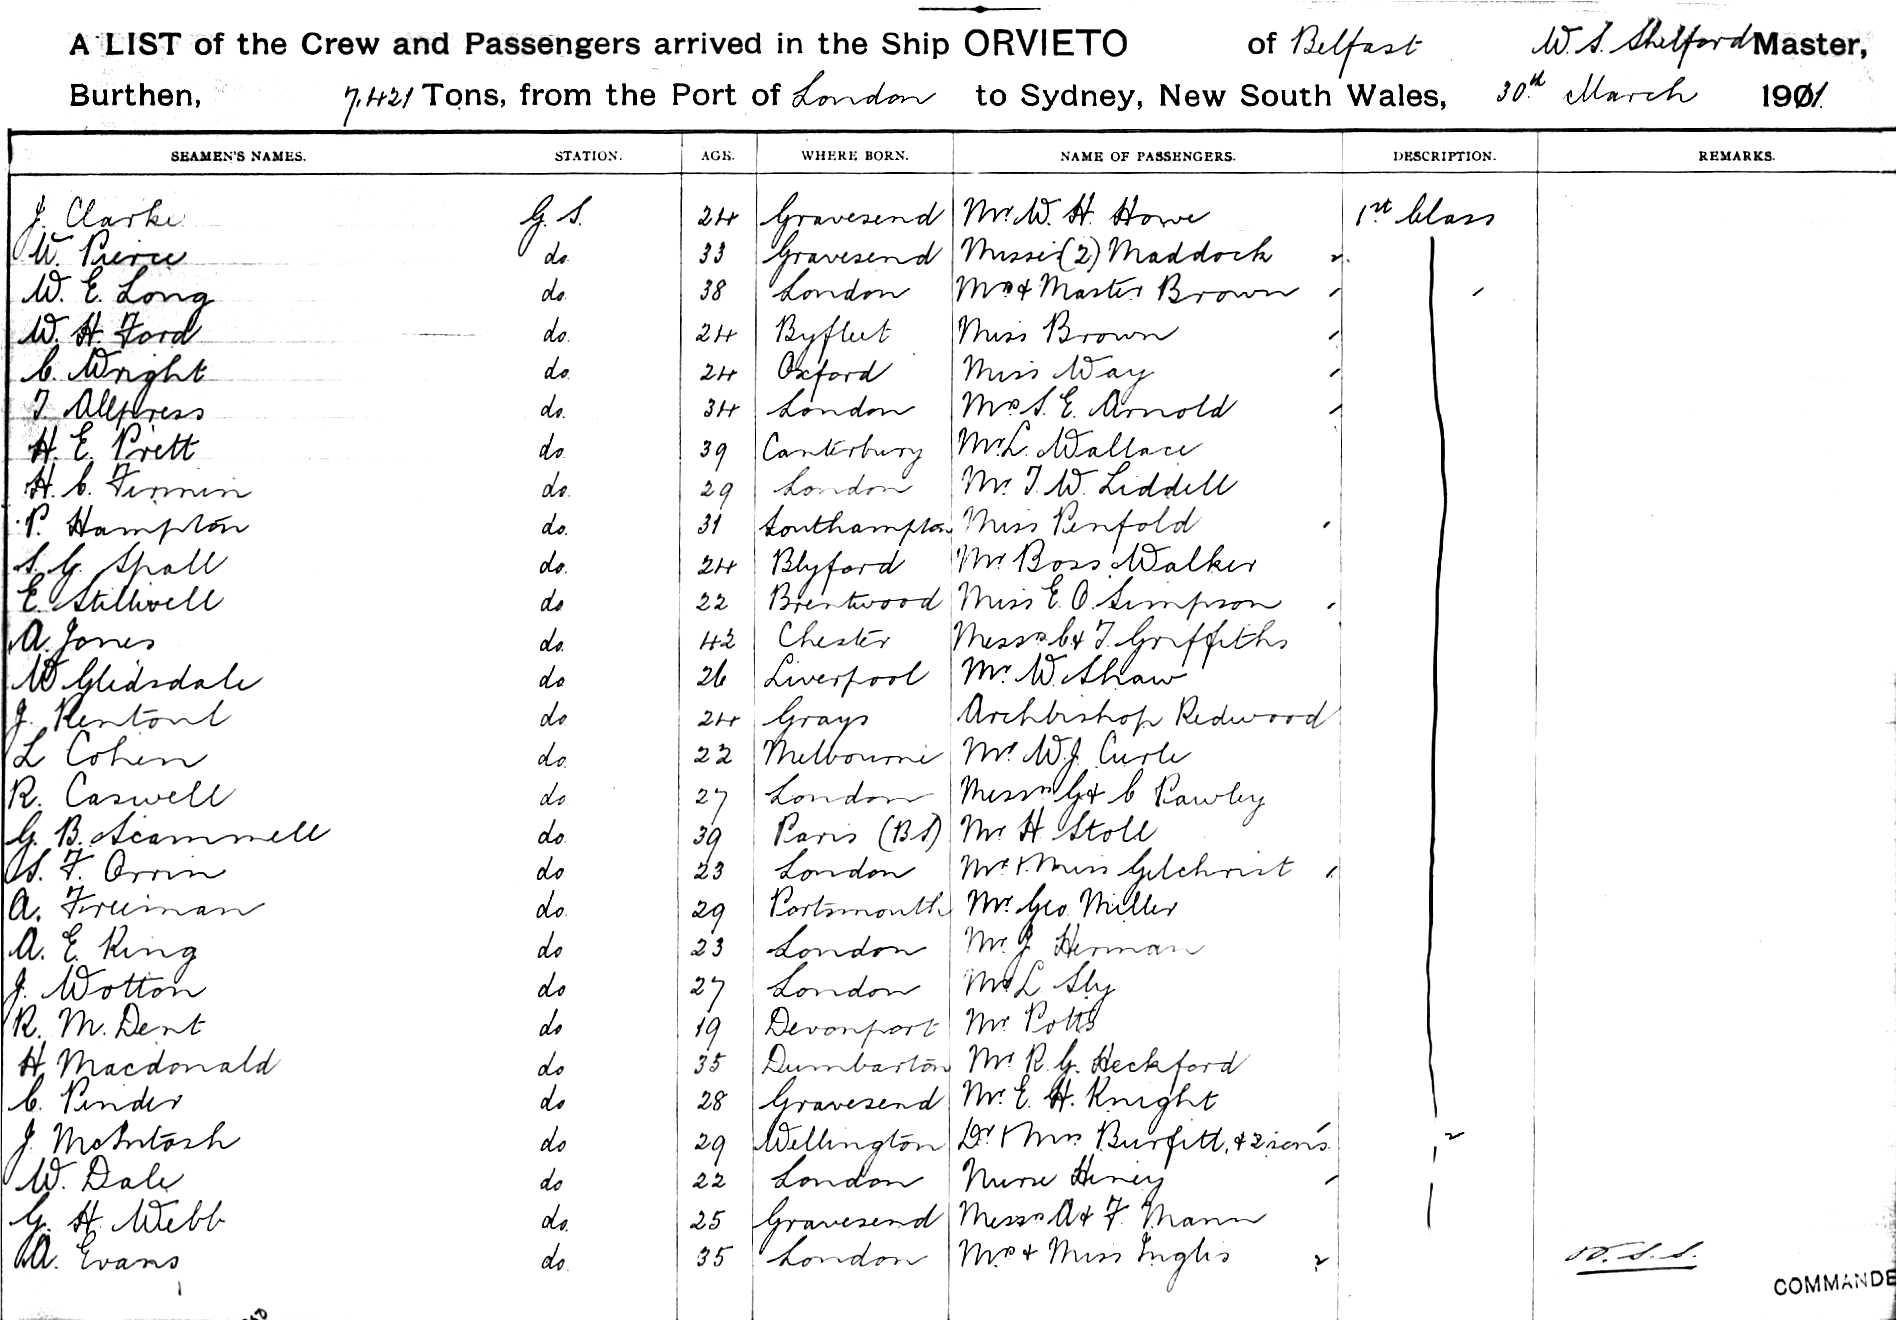 A LIST of the Crew and Passengers arrived in the Ship ORVIETO of Belfast W. S. Shelford Master,
Burthen, 7,421 Tons, from the Port of London to Sydney, New South Wales, 30th March 1901.
SEAMEN'S NAMES. STATION. AGE. WHERE BORN. NAME OF PASSENGERS. DESCRIPTION. REMARKS.
J. Clarke G. S. 24 Gravesend Mr W. H. Howe 1st Class
W. Pierce do 33 Gravesend Misses (2) Maddock
W. E. Long do. 38 London Mrs & Master Brown
W. H. Ford do. 24 Byfleet Miss Brown
C. Wright do. 24 Oxford Miss Way
T. Allpress do. 34 London Mrs S. E. Arnold
H. E. Prett do. 39 Canterbury Mr L. Wallace
H. C. Firmin do. 29 London Mr T. W. Liddell
P. Hampton do. 31 Southampton Miss Penfold
S. G. Spall do. 24 Blyford Mr Boss Walker
E. Stillwell do 22 Brentwood Miss E. O. Simpson
A. Jones do. 42 Chester Messrs C & T. Griffiths
W Gledsdale do 26 Liverpool Mr W. Shaw
J. Rentoul do 24 Grays Archbishop Redwood
L Cohen do. 22 Melbourne Mr W. J. Curle
R. Caswell do 27 London Messrs G & C Pawley
G. B. Scammell do. 39 Paris (BS) Mr H Stoll
S. F. Orrin do 23 London Mr & Miss Gilchrist
A. Freeman do. 29 Portsmouth Mr Geo Miller
A. E. King do 23 London Mr J Herman
J. Wotton do 27 London Mr L Sly
R. M. Dent do 19 Devonport Mr Potts
H Macdonald do 35 Dumbarton Mr R. G. Heckford
C. Pinder do 28 Gravesend Mr E. H. Knight
J. McIntosh do 29 Wellington Dr & Mrs Burfitt, & 2 sons
W. Dale do 22 London Nurse Heney
G. H. Webb do. 25 Gravesend Messrs A & F. Mann
A. Evans do. 35 London Mrs & Miss Inglis
W. S. S.
COMMANDE